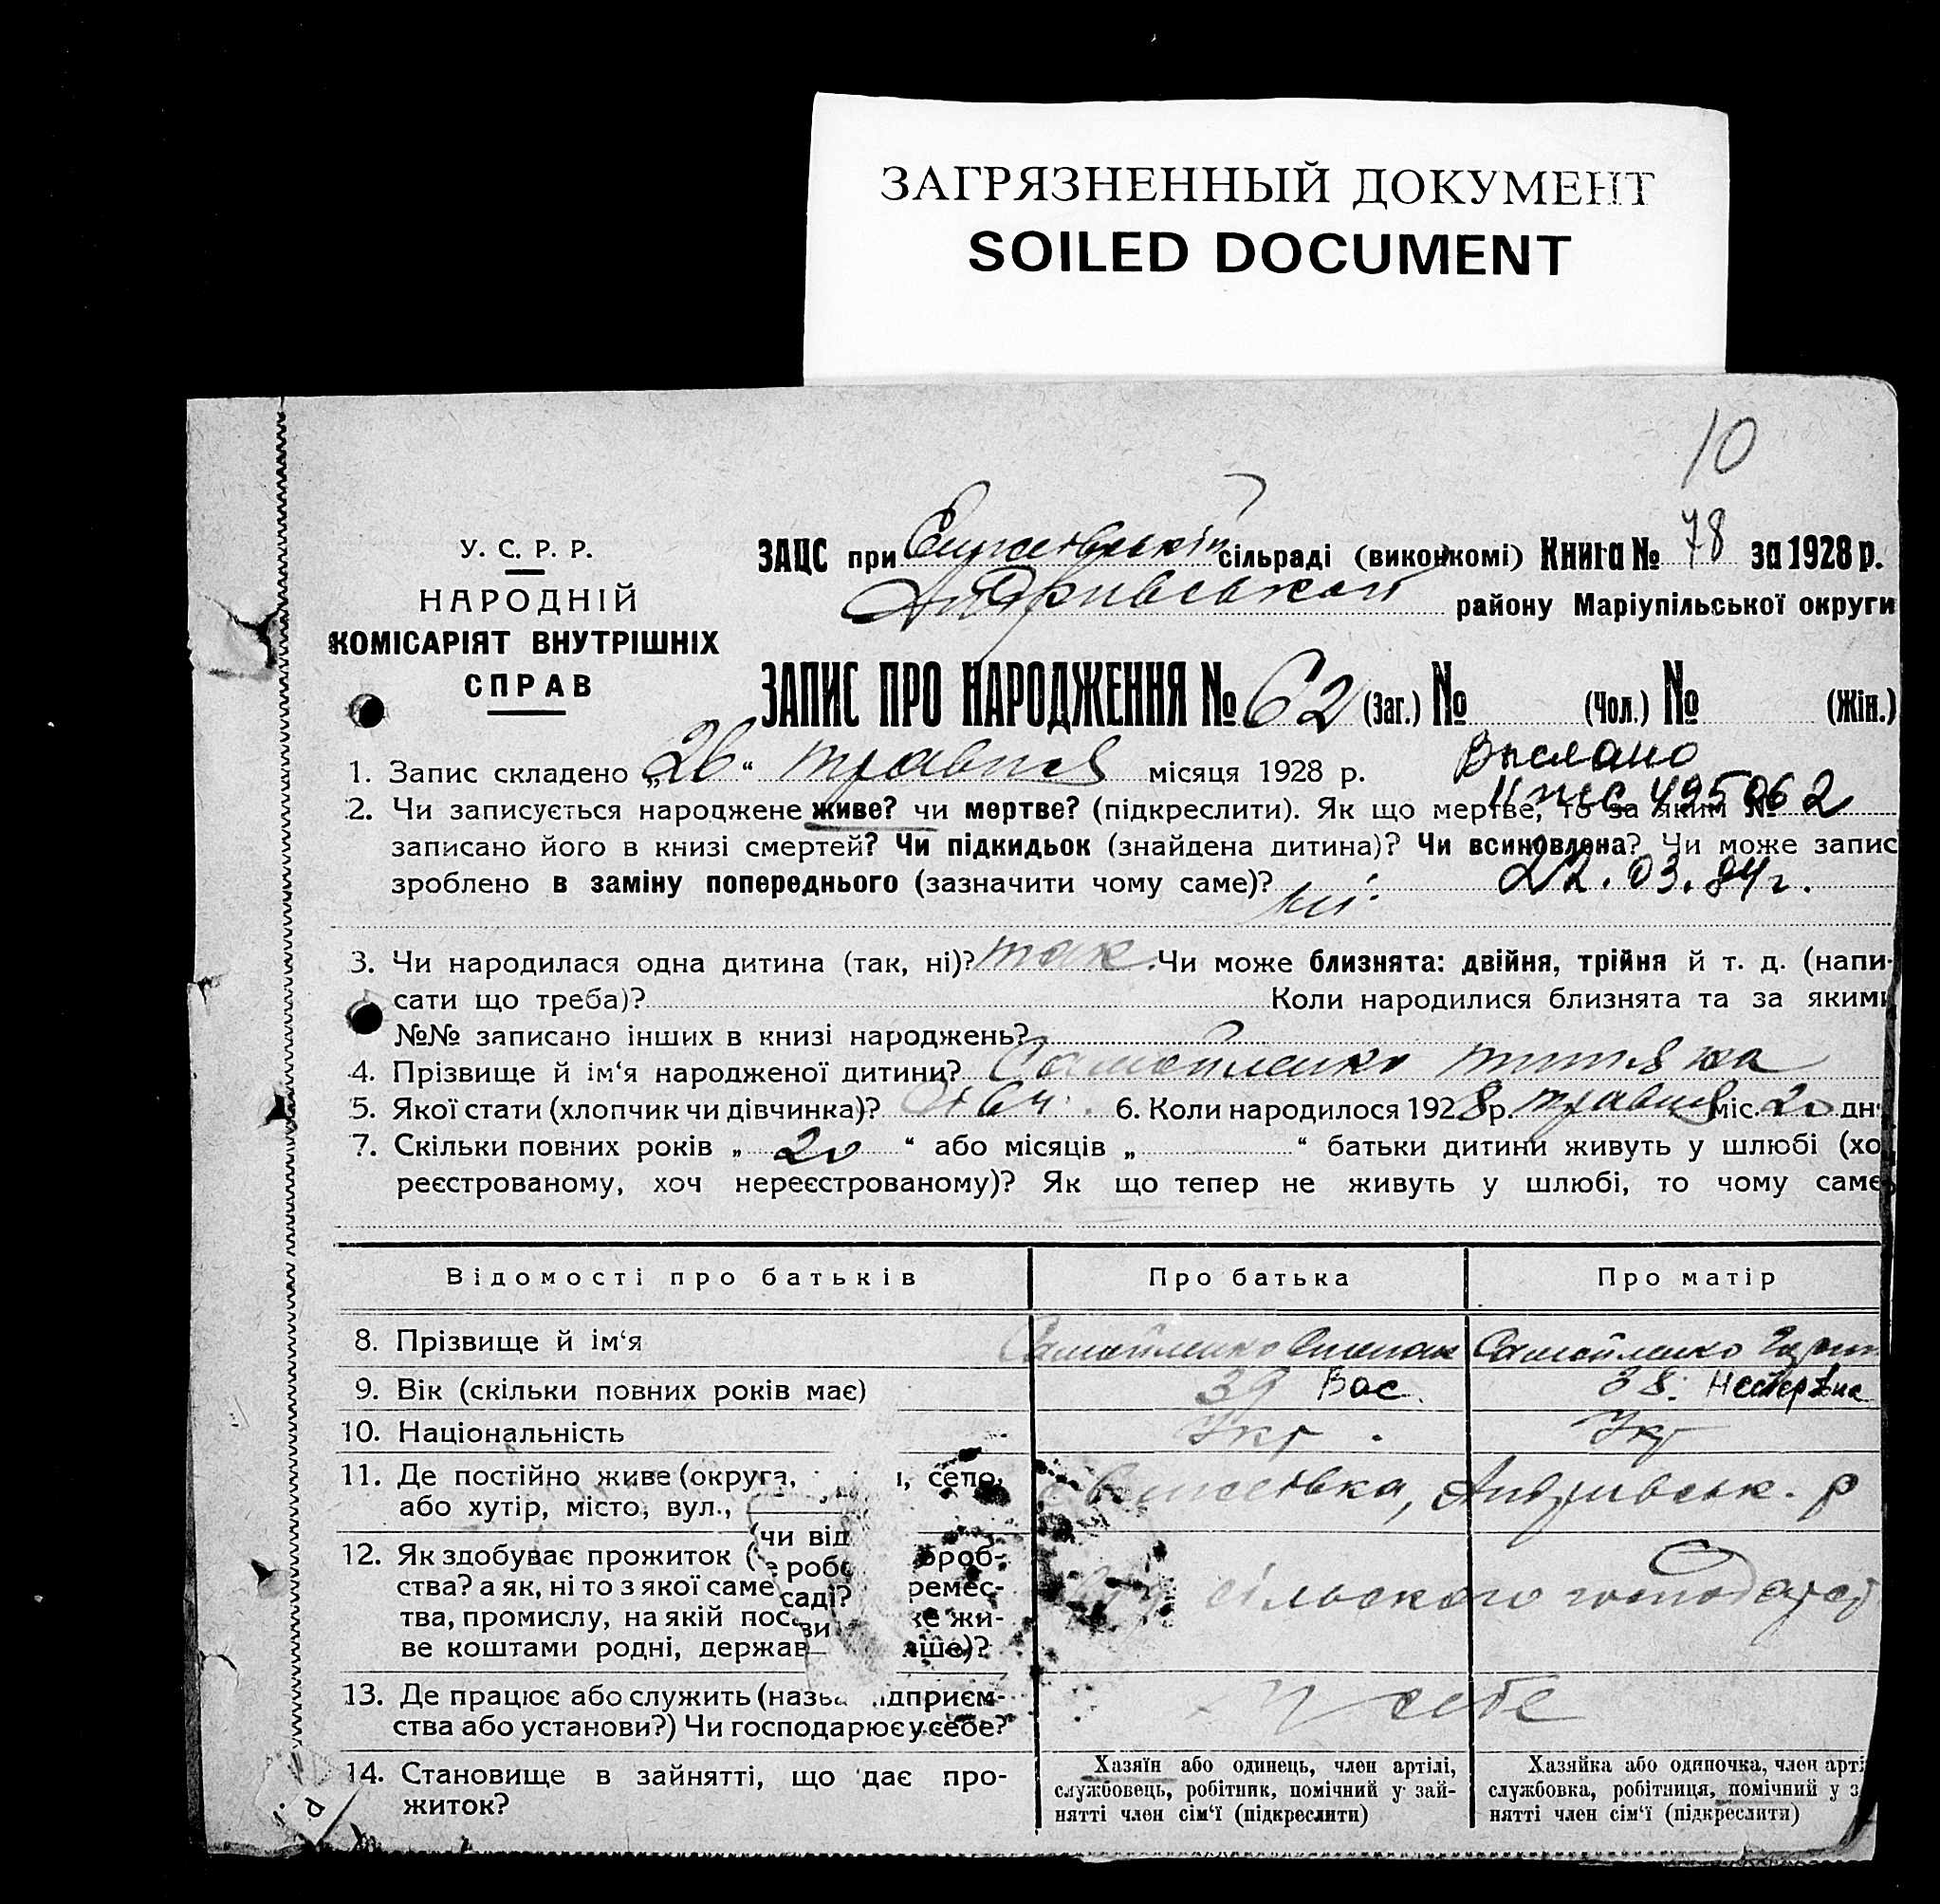 ЗАГРЯЗНЕННЫЙ ДОКУМЕНТ
SOILED DOCUMENT
10
У. С. Р. Р.
НАРОДНІЙ
КОМІСАРІЯТ ВНУТРІШНІХ
СПРАВ
ЗАЦС при сільраді (виконкомі) Книга № 78 за 1928 р.
району Маріупільської округи
ЗАПИС ПРО НАРОДЖЕННЯ № 62 (Заг.) № (Чол.) № (Жін.)
1. Запис складено „26“ травня місяця 1928 р.
Выслано
2. Чи записується народжене живе? чи мертве? (підкреслити). Як що мертве, то за яким №
495062
записано його в книзі смертей? Чи підкидьок (знайдена дитина)? Чи всиновлена? Чи може запис
зроблено в заміну попереднього (зазначити чому саме)? ні. 22.03.84г.
3. Чи народилася одна дитина (так, ні)? так. Чи може близнята: двійня, трійня й т. д. (напи-
сати що треба)? Коли народилися близнята та за якими
№№ записано інших в книзі народжень?
4. Прізвище й ім‘я народженої дитини? Самойленко
5. Якої стати (хлопчик чи дівчинка)? 6. Коли народилося 1928 р. травня міс. 20 дн.
7. Скільки повних років „ 20 “ або місяців „ “ батьки дитини живуть у шлюбі (хо
реєстрованому, хоч нереєстрованому)? Як що тепер не живуть у шлюбі, то чому саме
Відомості про батьків Про батька Про матір
8. Прізвище й ім‘я Самойленко Степан Самойленко
9. Вік (скільки повних років має) 39 Вас. 38. Нестеровна
10. Національність Укр. Укр
11. Де постійно живе (округа, село,
або хутір, місто, вул.,
12. Як здобуває прожиток (чи від
ства? а як, ні то з якої саме ремес-
тва, промислу, на якій поса
ве коштами родні, держав
сільского господарст
13. Де працює або служить (назва підприєм-
ства або установи?) Чи господарює у себе? У себе
14. Становище в зайнятті, що дає про-
житок?
Хазяїн або одинець, член артілі,
службовець, робітник, помічний у зай-
нятті член сім‘ї (підкреслити)
Хазяйка або одиночка, член арті
службовка, робітниця, помічний у з
нятті член сім‘ї (підкреслити)